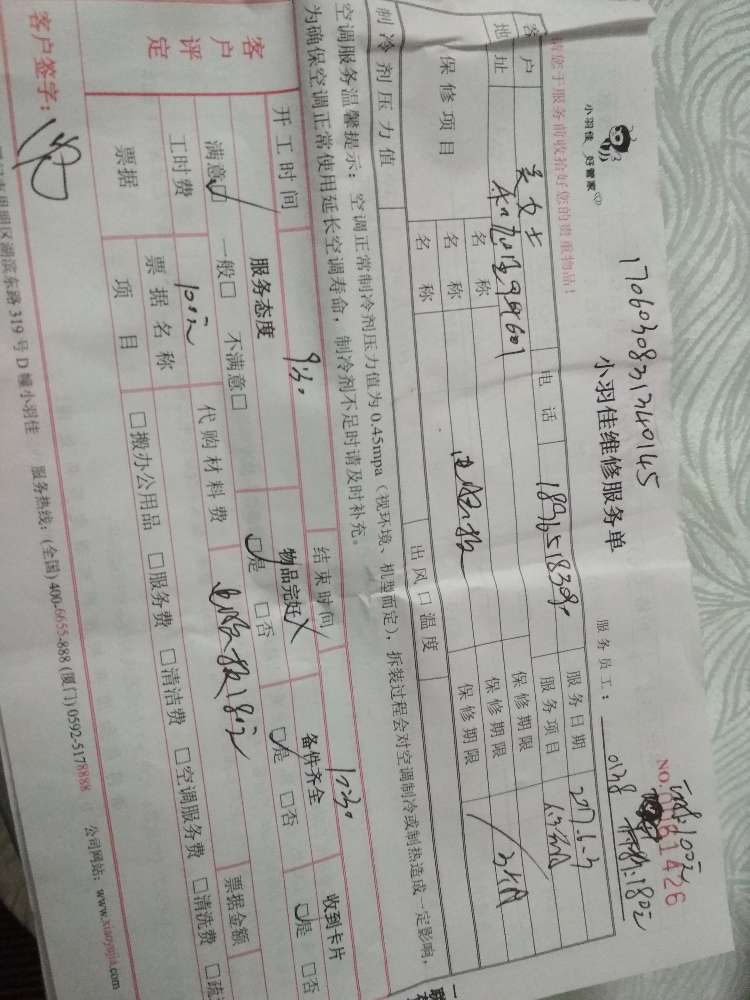 小羽佳 好管家
1706030831340145
小羽佳维修服务单
NO.0061426
服务员工： 0128
请您于服务前收拾好您的贵重物品！
客户 吴女士 电话 服务日期 2017.6.3
地址 服务项目
保修项目 名称 保修期限
名称 电脑板 保修期限 3个月
名称 保修期限
制冷剂压力值 出风口温度
空调服务温馨提示：空调正常制冷剂压力值为0.45mpa（视环境、机型而定），拆装过程会对空调制冷或制热造成一定影响，
为确保空调正常使用延长空调寿命，制冷剂不足时请及时补充。
开工时间 9:30 结束时间 12:30
客户评定 服务态度 物品完好 备件齐全 收到卡片
满意□ 一般□ 不满意□ □是 □否 □是 □否 □是 □否
工时费 100元 代购材料费 电脑板180元
票据 票据名称 票据金额
项目 □搬办公用品 □服务费 □清洁费 □空调服务费 □清洗费
客户签字：
湖滨东路319号D幢小羽佳 服务热线：(全国)400-6655-888 (厦门)0592-5178888 公司网站：www.xiaoyujia.com